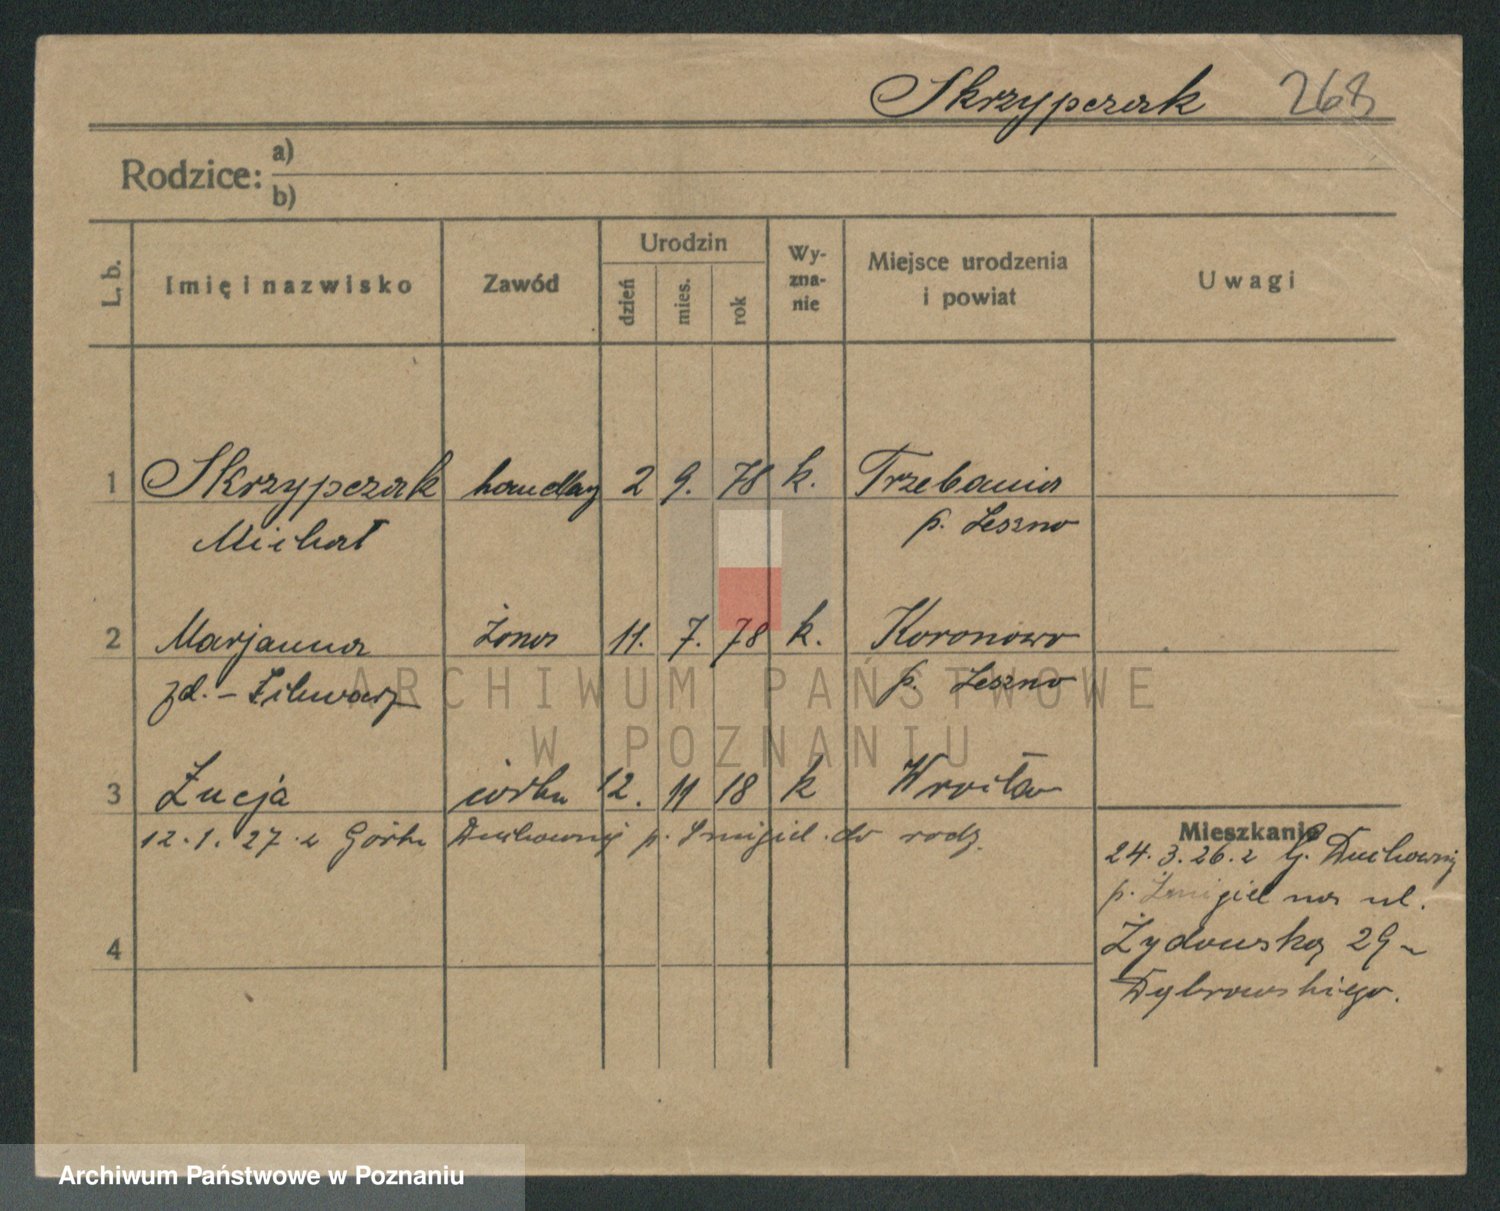 Skrzypczak 268
Rodzice: a)
b)
L. b. Imię i nazwisko Zawód Urodzin dzień mies. rok Wy-zna-nie Miejsce urodzenia i powiat Uwagi
1 Skrzypczak handlarz 2 9. 78 k. Trzebania
Michał p. Leszno
2 Marjanna żona 11. 7. 78 k. Koronowo
zd. - p. Leszno
ARCHIWUM PAŃSTWOWE
W POZNANIU
3 Łucja córka 12. 11 18 k
12.1.27. z Górki Duchownej p. Śmigiel do rodz.
Mieszkanie
24.3.26. z G. Duchownej
p. Śmigiel na ul.
Żydowską 29 -
Dąbrowskiego.
4
Archiwum Państwowe w Poznaniu